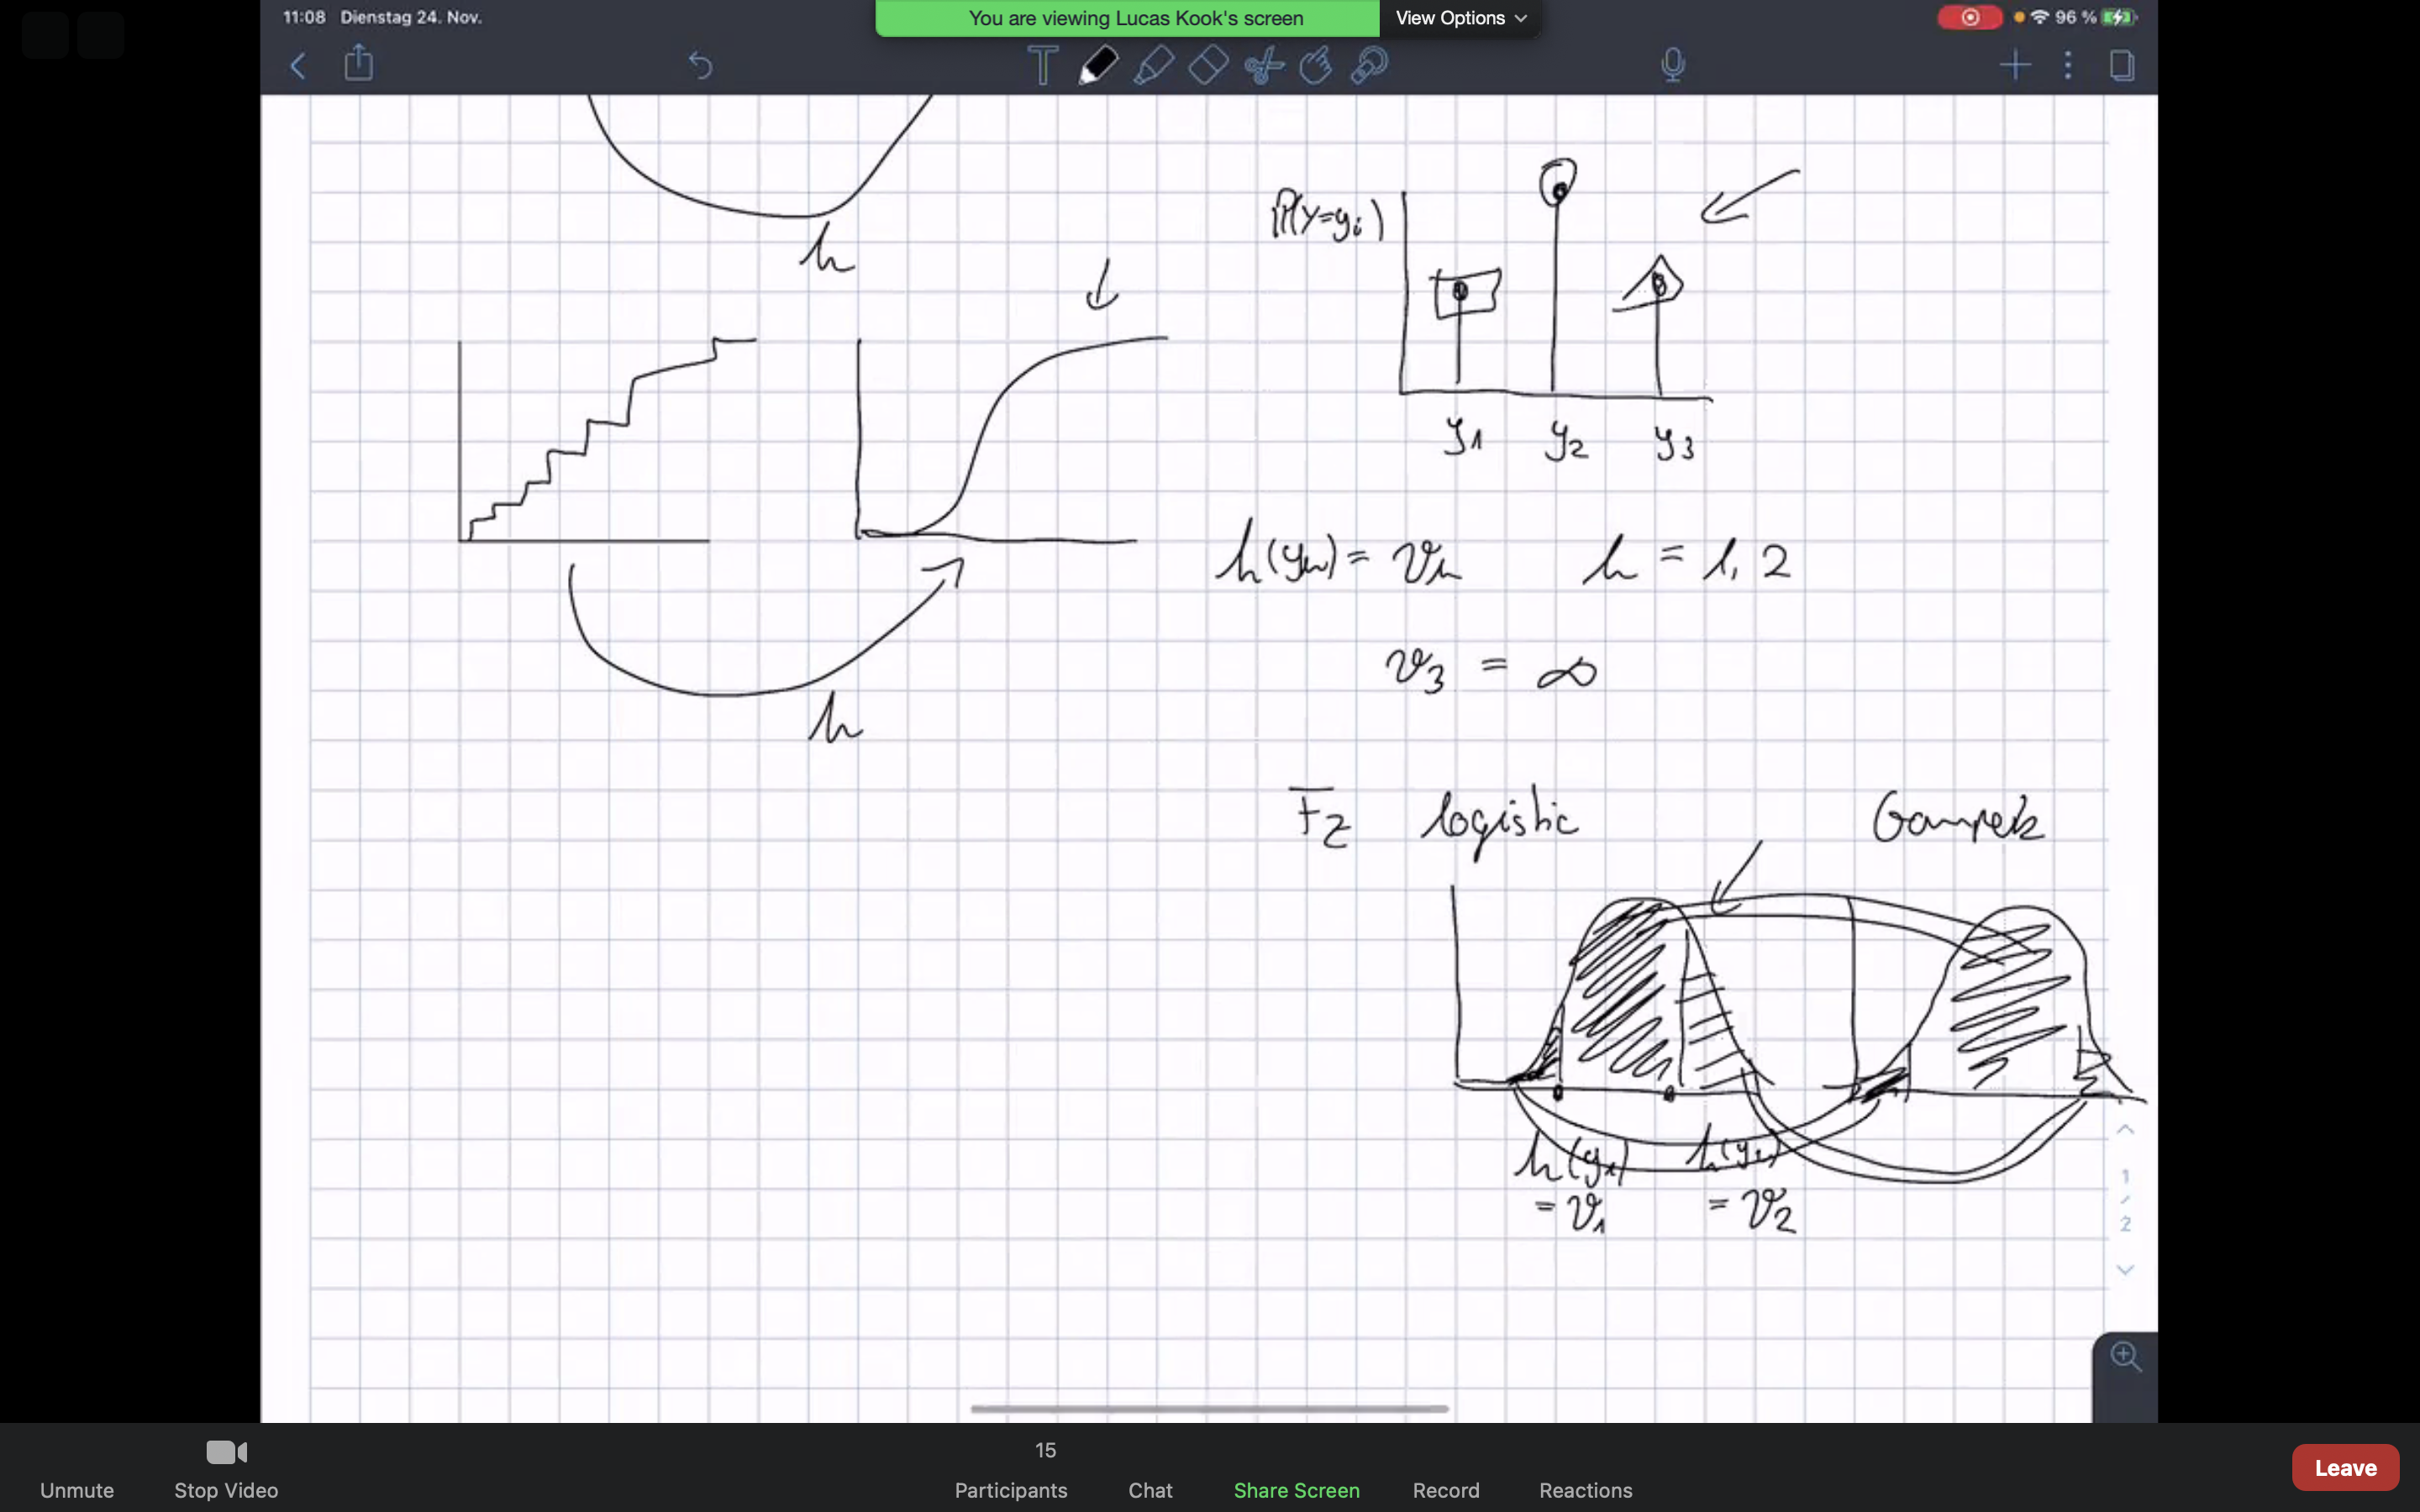 11:08 Dienstag 24. Nov.
You are viewing Lucas Kook's screen
View Options
96 %
T
h
P(Y=yi)
y1 y2 y3
h
h(yk) = ϑk k = 1, 2
ϑ3 = ∞
FZ logistic Gompertz
h(y1) h(y2)
= ϑ1 = ϑ2
1
/
2
Unmute
Stop Video
15
Participants
Chat
Share Screen
Record
Reactions
Leave